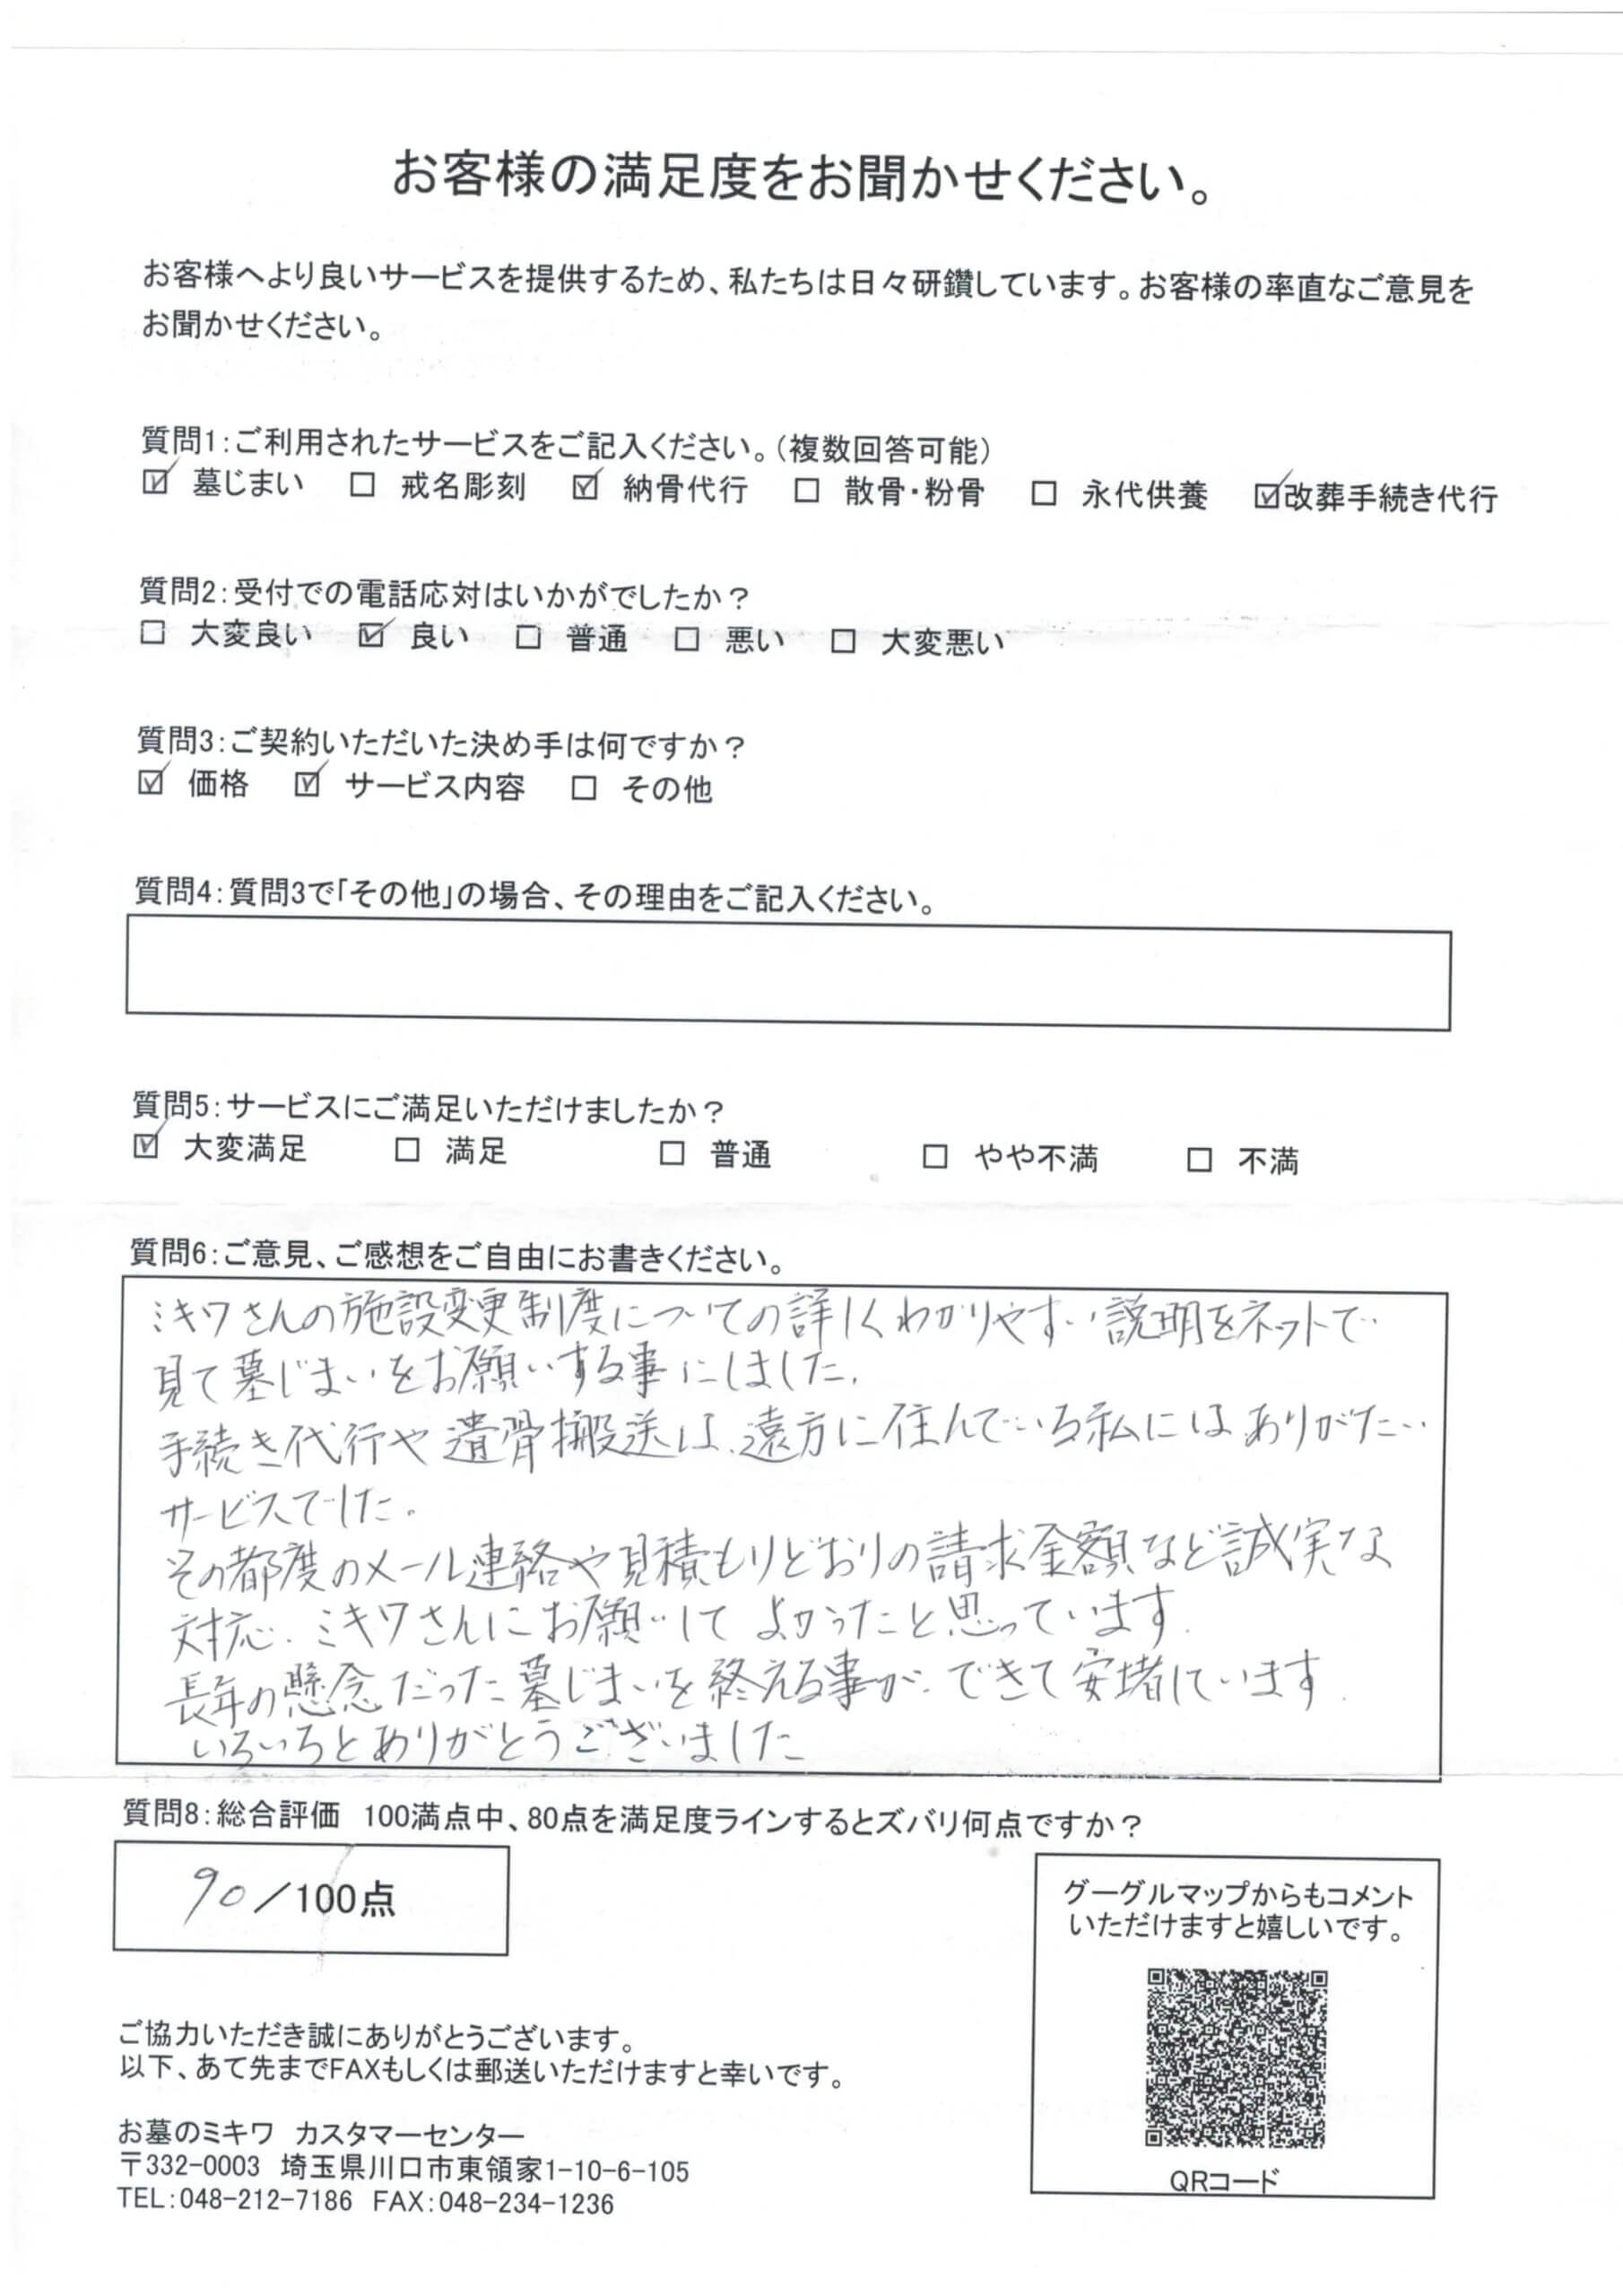 お客様の満足度をお聞かせください。
お客様へより良いサービスを提供するため、私たちは日々研鑽しています。お客様の率直なご意見を
お聞かせください。
質問1:ご利用されたサービスをご記入ください。(複数回答可能)
☑ 墓じまい □ 戒名彫刻 ☑ 納骨代行 □ 散骨・粉骨 □ 永代供養 ☑改葬手続き代行
質問2:受付での電話応対はいかがでしたか?
□ 大変良い ☑ 良い □ 普通 □ 悪い □ 大変悪い
質問3:ご契約いただいた決め手は何ですか?
☑ 価格 ☑ サービス内容 □ その他
質問4:質問3で「その他」の場合、その理由をご記入ください。
質問5:サービスにご満足いただけましたか?
☑ 大変満足 □ 満足 □ 普通 □ やや不満 □ 不満
質問6:ご意見、ご感想をご自由にお書きください。
ミキワさんの施設変更制度についての詳しくわかりやすい説明をネットで
見て墓じまいをお願いする事にしました。
手続き代行や遺骨搬送は、遠方に住んでいる私にはありがたい
サービスでした。
その都度のメール連絡や見積もりどおりの請求金額など誠実な
対応、ミキワさんにお願いしてよかったと思っています。
長年の懸念だった墓じまいを終える事ができて安堵しています。
いろいろとありがとうございました
質問8:総合評価 100満点中、80点を満足度ラインするとズバリ何点ですか?
90/100点
グーグルマップからもコメント
いただけますと嬉しいです。
QRコード
ご協力いただき誠にありがとうございます。
以下、あて先までFAXもしくは郵送いただけますと幸いです。
お墓のミキワ カスタマーセンター
〒332-0003 埼玉県川口市東領家1-10-6-105
TEL:048-212-7186 FAX:048-234-1236